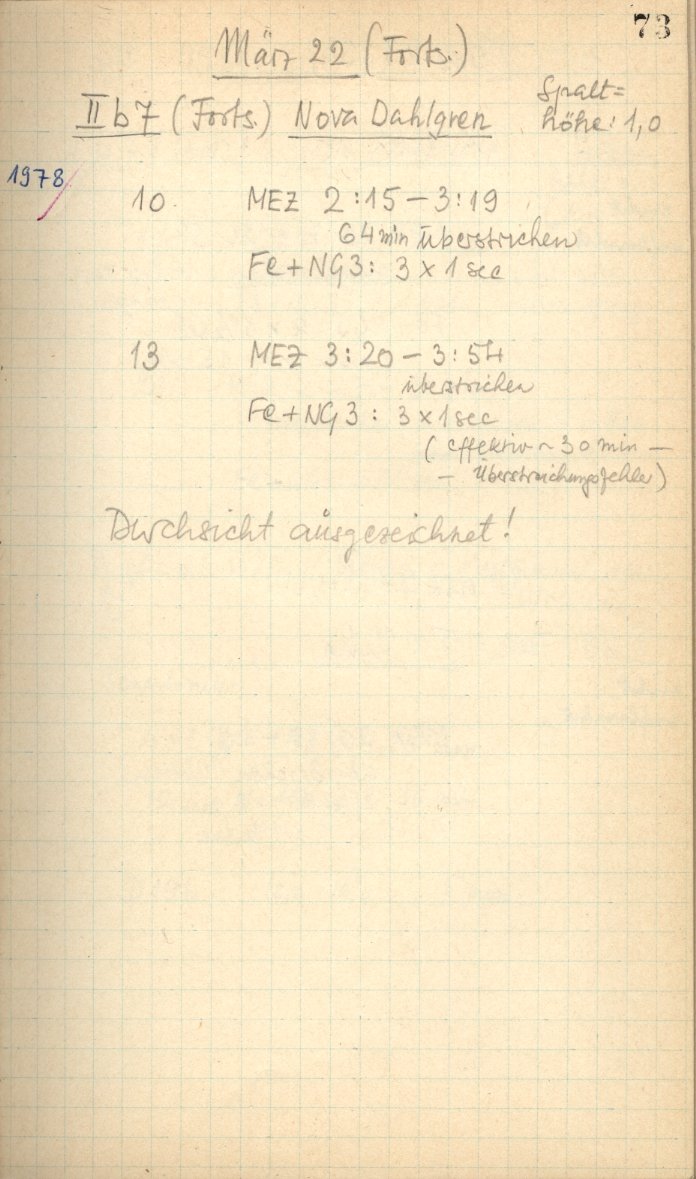 73
März 22 (Forts.)
II b 7 (Forts.) Nova Dahlgren
Spalt=
höhe: 1,0
1978
10 MEZ 2:15 – 3:19
64 min überstrichen
Fe+NG3: 3 x 1 sec
13 MEZ 3:20 – 3:54
überstrichen
Fe+NG3: 3 x 1 sec
(effektiv ~ 30 min –
– Überstreichungsfehler)
Durchsicht ausgezeichnet!